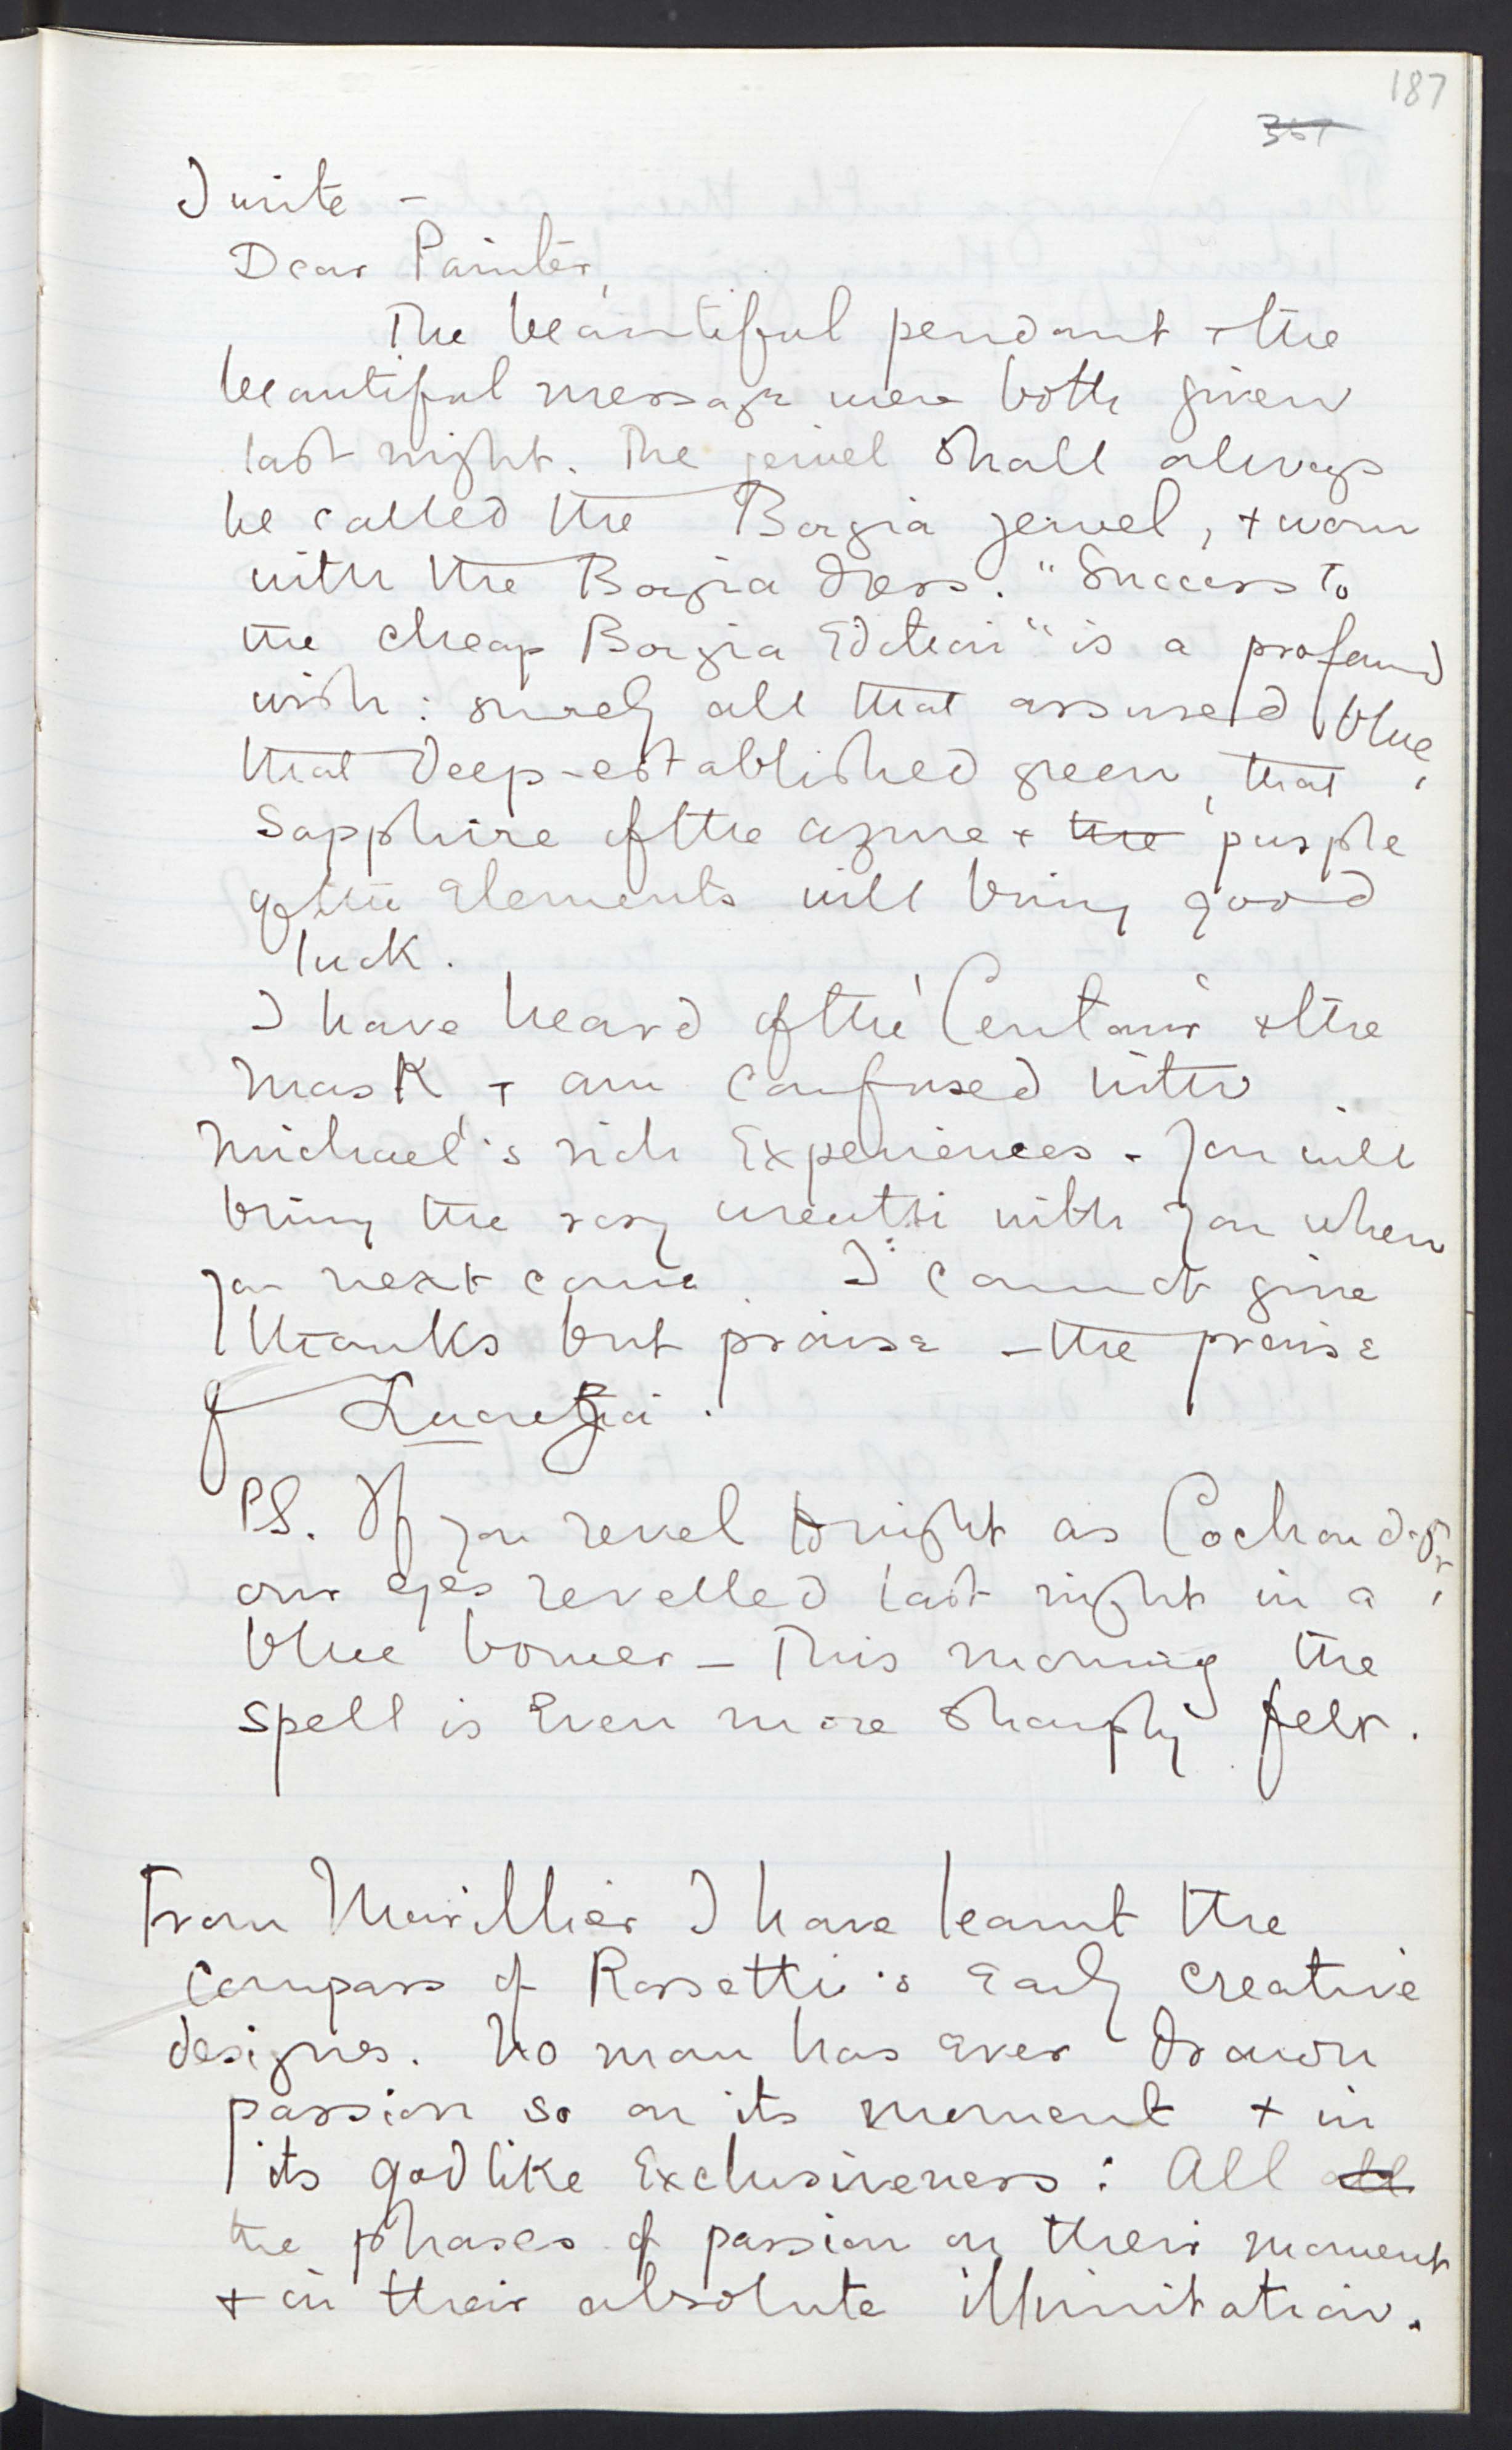 187
I write –
Dear Painter,
The beautiful pendant + the
beautiful message were both given
last night. The jewel shall always
be called the Borgia jewel, + worn
with the Borgia dress. "Success to
the cheap Borgia Edition" is a profound
wish: surely all that assured blue,
that deep-established green, that
Sapphire of the azure + the purple
of the Elements will bring good
luck.
I have heard of the 'Centaur' + the
Mask + am confused with
Michael's rich Experiences. You will
bring the rosy wreath with you when
you next come. I cannot give
thanks but praise – the praise
of Lucrezia.
PS. If you revel tonight as
our eyes revelled last night in a
blue bower – This morning the
spell is Even more sharply felt.
From Marillier I have learnt the
compass of Rossetti's Early creative
designs. No man has Ever drawn
passion so on its moment + in
its godlike Exclusiveness: All all
the phases of passion on their moment
+ in their absolute illimitation.